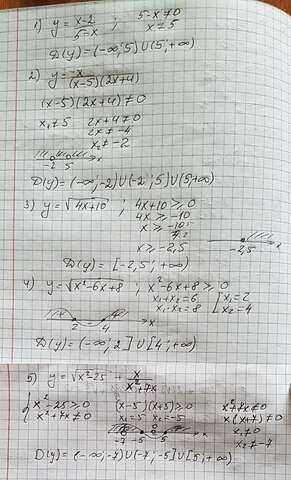 1) y = x-2/5-x ; 5-x ≠ 0
x ≠ 5
D(y) = (-∞; 5) ∪ (5; +∞)
2) y = -x/(x-5)(2x+4)
(x-5)(2x+4) ≠ 0
x₁ ≠ 5 2x+4 ≠ 0
2x ≠ -4
x₂ ≠ -2
-2 5 x
D(y) = (-∞; -2) ∪ (-2; 5) ∪ (5; +∞)
3) y = √4x+10 ; 4x+10 ≥ 0
4x ≥ -10
x ≥ -10:
x ≥ -2,5 -2,5 x
D(y) = [-2,5; +∞)
4) y = √x²-6x+8 ; x²-6x+8 ≥ 0
x₁+x₂ = 6 [ x₁ = 2
x₁·x₂ = 8 x₂ = 4
2 4 x
D(y) = (-∞; 2] ∪ [4; +∞)
5) y = √x²-25 + x/x²+7x
{ x²-25 ≥ 0 (x-5)(x+5) ≥ 0 x²+7x ≠ 0
x²+7x ≠ 0 x₁ = 5 x₂ = -5 x(x+7) ≠ 0
x₁ ≠ 0
-7 -5 5 x x₂ ≠ -7
D(y) = (-∞; -7) ∪ (-7; -5] ∪ [5; +∞)